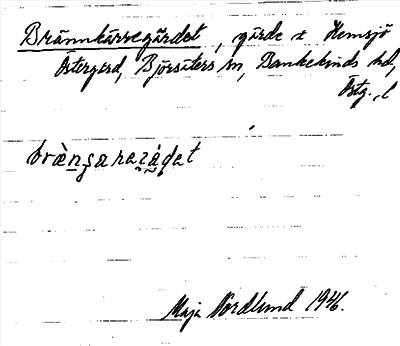 Brännkärregärdet, gärde i Hemsjö
Östergård, Björsäters sn, Bankekinds hd,
Östg., l
brànsarazádat
Maja Nordlund 1946.